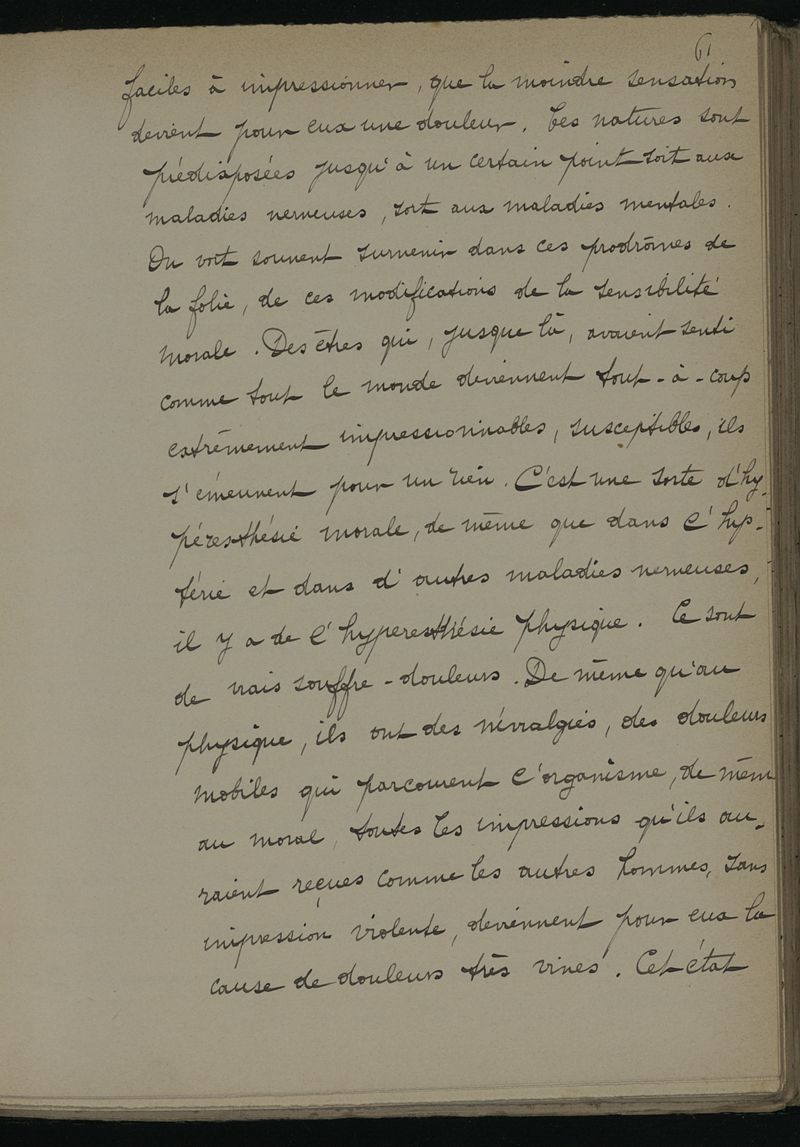 61
faciles à impressionner, que la moindre sensation
devient pour eux une douleur. Ces natures sont
prédisposées jusqu'à un certain point soit aux
maladies nerveuses, soit aux maladies mentales.
On voit souvent survenir dans ces prodrômes de
la folie, de ces modifications de la sensibilité
morale. Des êtres qui, jusque là, avaient senti
comme tout le monde deviennent tout-à-coup
extrêmement impressionnables, susceptibles, ils
s'émeuvent pour un rien. C'est une sorte d'hy-
péresthésie morale, de même que dans l'hys-
térie et dans d'autres maladies nerveuses,
il y a de l'hyperesthésie physique. Ce sont
de vrais souffre-douleurs. De même qu'au
physique, ils ont des névralgies, des douleurs
mobiles qui parcourent l'organisme, de même
au moral, toutes les impressions qu'ils au-
raient reçues comme les autres hommes, sans
impression violente, deviennent pour eux la
cause de douleurs très vives. Cet état